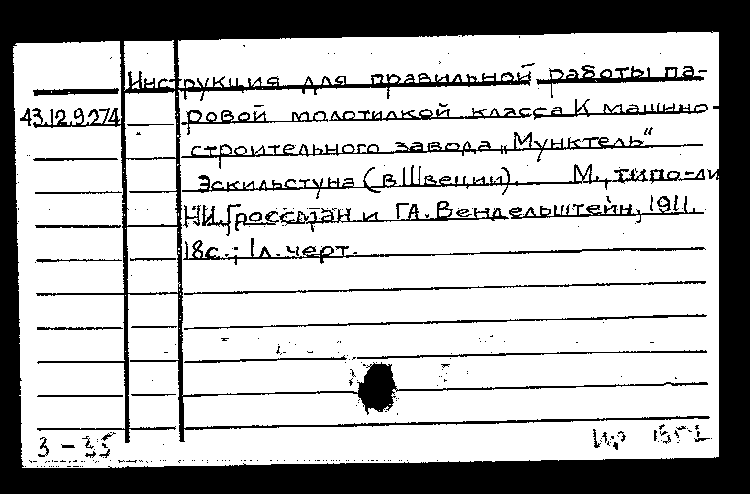 Инструкция для правильной работы па-
43.12.9274 ровой молотилкой класса К машино-
строительного завода „Мунктель"
Эскильстуна (в Швеции). М., типо-ли
Н.И. Гроссман и Г.А. Вендельштейн, 1911.
18с.; 1л. черт.
3 - 35